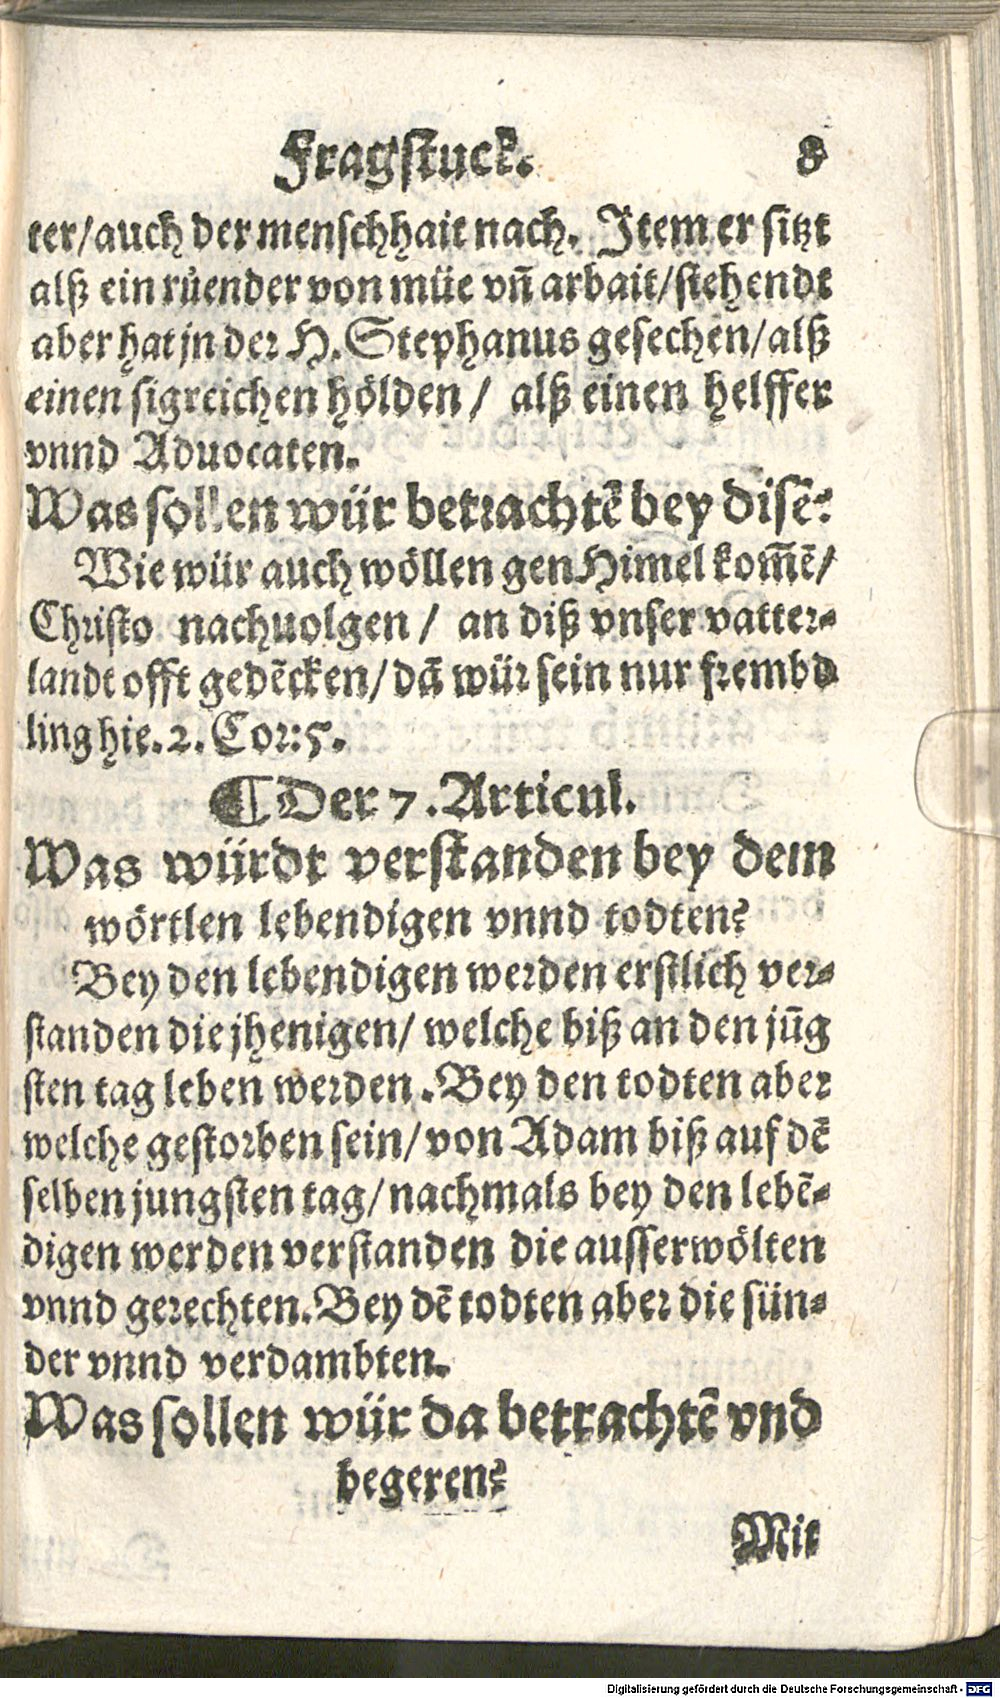 Fragstuck. 8
ter/auch der menschhait nach. Item er sitzt
alß ein růender von müe vn̄ arbait/stehendt
aber hat jn der H. Stephanus gesechen/alß
einen sigreichen hölden / alß einen helffer
vnnd Aduocaten.
Was sollen wür betrachtē bey disē?
Wie wür auch wöllen gen Himel kom̄ē/
Christo nachuolgen / an diß vnser vatter-
landt offt gedēcken/dā wür sein nur frembd
ling hie. 2. Cor: 5.
¶ Der 7. Articul.
Was würdt verstanden bey dem
wörtlen lebendigen vnnd todten?
Bey den lebendigen werden erstlich ver-
standen die jhenigen/ welche biß an den jūg
sten tag leben werden. Bey den todten aber
welche gestorben sein/ von Adam biß auf dē
selben jungsten tag/ nachmals bey den lebē-
digen werden verstanden die ausserwölten
vnnd gerechten. Bey dē todten aber die sün-
der vnnd verdambten.
Was sollen wür da betrachtē vnd
begeren?
Mit
Digitalisierung gefördert durch die Deutsche Forschungsgemeinschaft - DFG